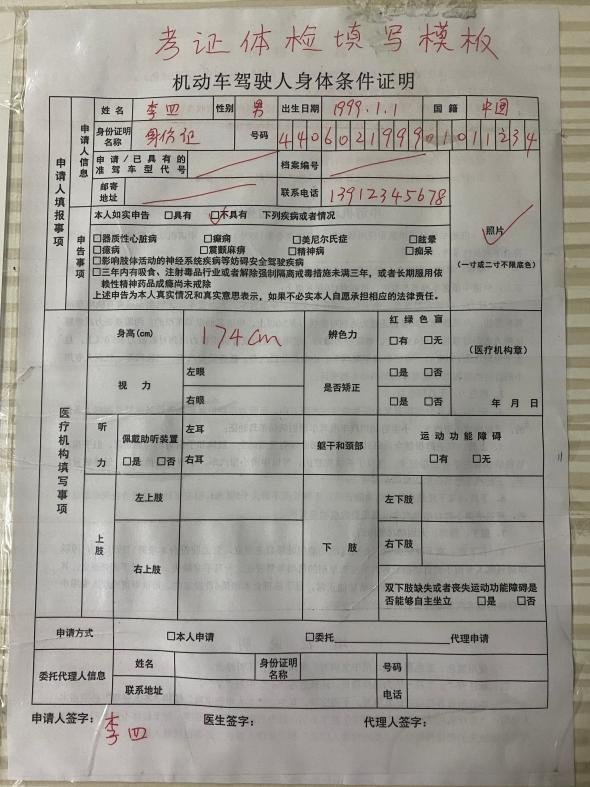 考证体检填写模板
机动车驾驶人身体条件证明
申请人填报事项
申请人信息
姓名 李四 性别 男 出生日期 1999.1.1 国籍 中国
身份证明名称 身份证 号码 440602199901011234
申请/已具有的准驾车型代号 档案编号
邮寄地址 联系电话 13912345678
申告事项
本人如实申告 □具有 □不具有 下列疾病或者情况
□器质性心脏病 □癫痫 □美尼尔氏症 □眩晕
□癔病 □震颤麻痹 □精神病 □痴呆
□影响肢体活动的神经系统疾病等妨碍安全驾驶疾病
□三年内有吸食、注射毒品行业或者解除强制隔离戒毒措施未满三年，或者长期服用依
赖性精神药品成瘾尚未戒除
上述申告为本人真实情况和真实意思表示，如果不必实本人自愿承担相应的法律责任。
照片
（一寸或二寸不限底色）
医疗机构填写事项
身高(cm) 174cm 辨色力 红绿色盲
□有 □无
（医疗机构章）
视力 左眼 是否矫正 □是 □否
右眼 □是 □否
年 月 日
听力 佩戴助听装置 □是 □否 左耳
右耳
躯干和颈部 运动功能障碍
□有 □无
上肢 左上肢
右上肢
下肢 左下肢
右下肢
双下肢缺失或者丧失运动功能障碍是
否能够自主坐立 □是 □否
申请方式 □本人申请 □委托 代理申请
委托代理人信息 姓名 身份证明名称 号码
联系地址 电话
申请人签字：李四 医生签字： 代理人签字：